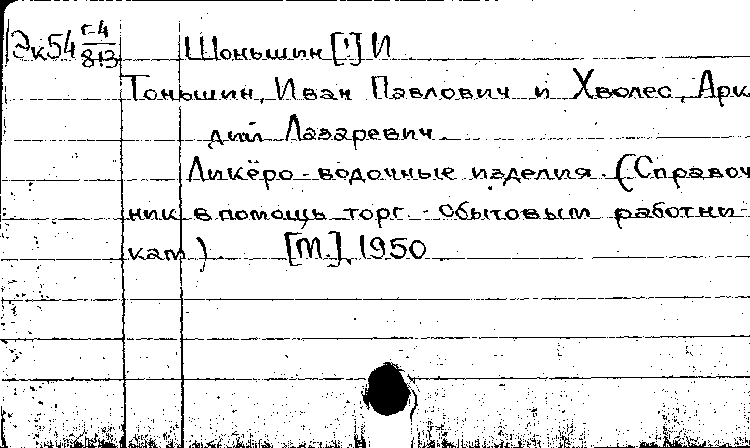 Эк54 Г-4/813 Шоньшин [!] И
Тоньшин, Иван Павлович и Хволес, Арка
дий Лазаревич.
Ликёро-водочные изделия. (Справоч
ник в помощь торг.-сбытовым работни-
кам). [М.], 1950